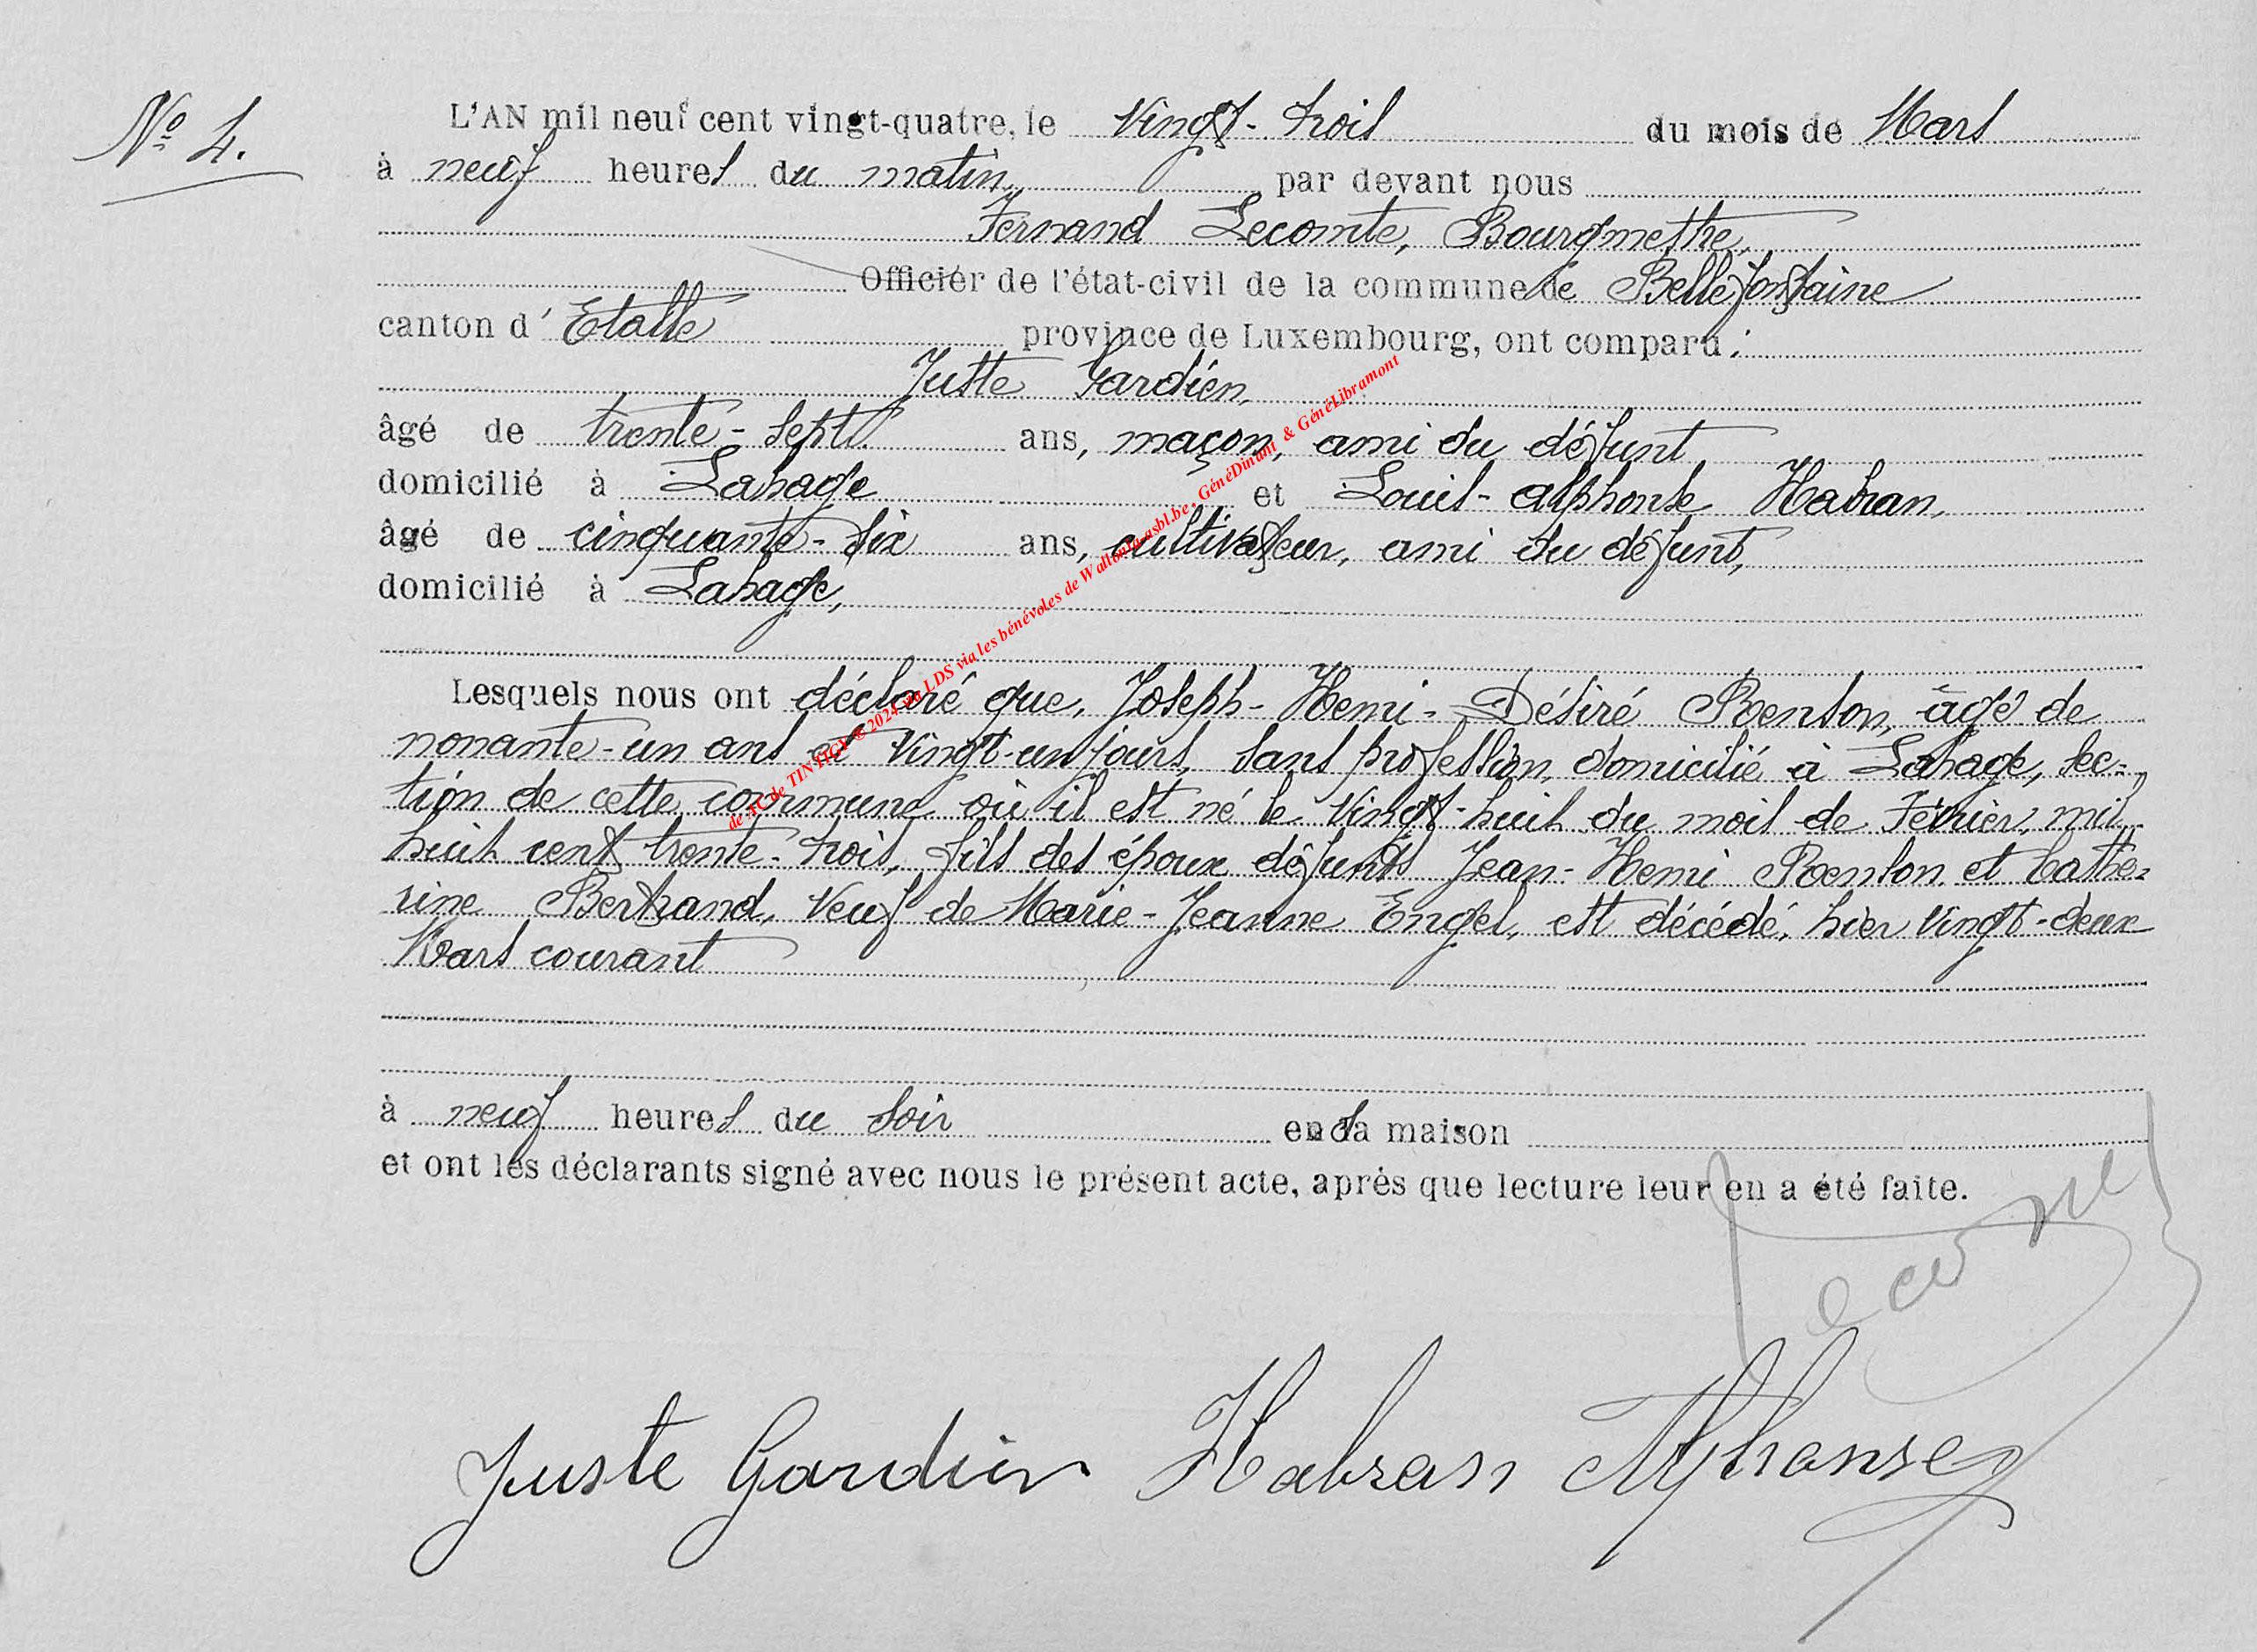 N° 4.
L'AN mil neuf cent vingt-quatre, le Vingt-trois du mois de Mars
à neuf heures du matin, par devant nous
Fernand Lecomte, Bourgmestre,
Officier de l'état-civil de la commune de Bellefontaine
canton d'Etalle province de Luxembourg, ont comparu :
Juste Gardien,
âgé de trente-sept ans, maçon, ami du défunt
domicilié à Lahage et Louis-Alphonse Habran,
âgé de cinquante-six ans, cultivateur, ami du défunt,
domicilié à Lahage,
Lesquels nous ont déclaré que, Joseph-Henri-Désiré Roenson, âgé de
nonante-un ans et vingt-un jours, sans profession, domicilié à Lahage, sec=
tion de cette commune où il est né le vingt-huit du mois de Février, mil
huit cent trente-trois, fils des époux défunts Jean-Henri Roenson et Cathe=
rine Bertrand, Veuf de Marie-Jeanne Engel, est décédé, hier vingt-deux
Mars courant
à neuf heures du soir en sa maison
et ont les déclarants signé avec nous le présent acte, après que lecture leur en a été faite.
Lecomte
Juste Gardien Habran Alphonse
de AC de TINTIGY © 2024 via LDS via les bénévoles de Wallonia-asbl.be, GénéDinant & GénéLibramont